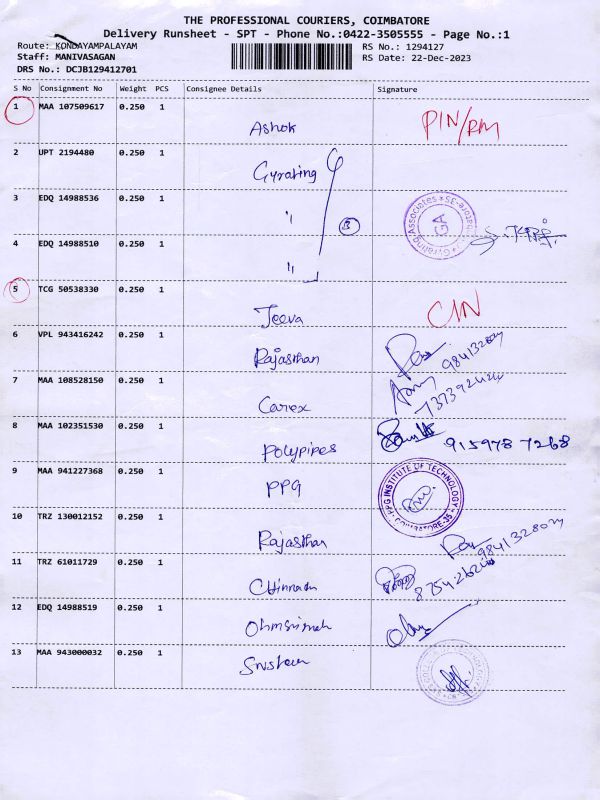 THE PROFESSIONAL COURIERS, COIMBATORE
Delivery Runsheet - SPT - Phone No.:0422-3505555 - Page No.:1
Route: KONDAYAMPALAYAM RS No.: 1294127
Staff: MANIVASAGAN RS Date: 22-Dec-2023
DRS No.: DCJB129412701
S No Consignment No Weight PCS Consignee Details Signature
1 MAA 107509617 0.250 1 Ashok PIN/RM
2 UPT 2194480 0.250 1 Gyrating
3 EDQ 14988536 0.250 1 " 3
Gyrating Associates
GA
4 EDQ 14988510 0.250 1 "
5 TCG 50538330 0.250 1 Jeeva CIN
6 VPL 943416242 0.250 1 Rajasthan
7 MAA 108528150 0.250 1 Carex
8 MAA 102351530 0.250 1 Polypipes 915978 7268
9 MAA 941227368 0.250 1 PPG
PPG INSTITUTE OF TECHNOLOGY
COIMBATORE-35
10 TRZ 130012152 0.250 1 Rajasthan
11 TRZ 61011729 0.250 1
12 EDQ 14988519 0.250 1
13 MAA 943000032 0.250 1